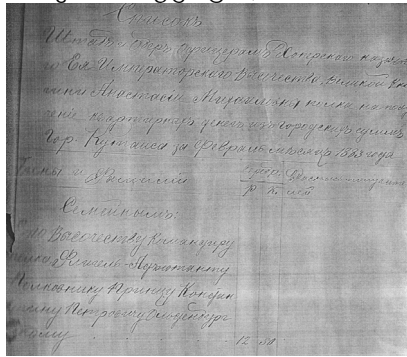 Списокъ
Штабъ Оберъ Офицерамъ Хоперскаго казачья
го Ея Императорскаго Высочества, великой кня
гини Анастасіи Михайловны полка на полу
ченіе квартирныхъ денегъ изъ городскихъ суммъ
Гор. Кутаиса за Февраль мѣсяцъ 1883 года
Чины и Фамиліи
Р. К.
Семейнымъ:
Его Высочеству Командиру
полка Флигель-Адъютанту
Полковнику Принцу Констан
тину Петровичу Ольденбург
скому 12 50